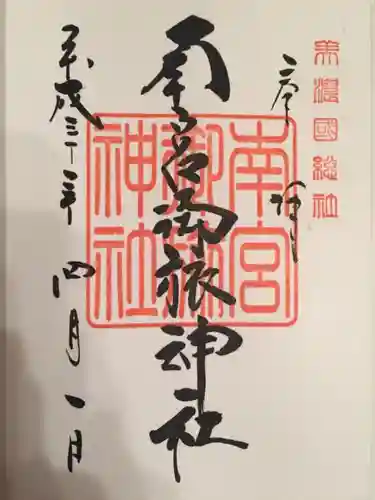 美濃國総社
奉拝
南宮御旅神社
南宮御旅神社
平成三十一年四月一日